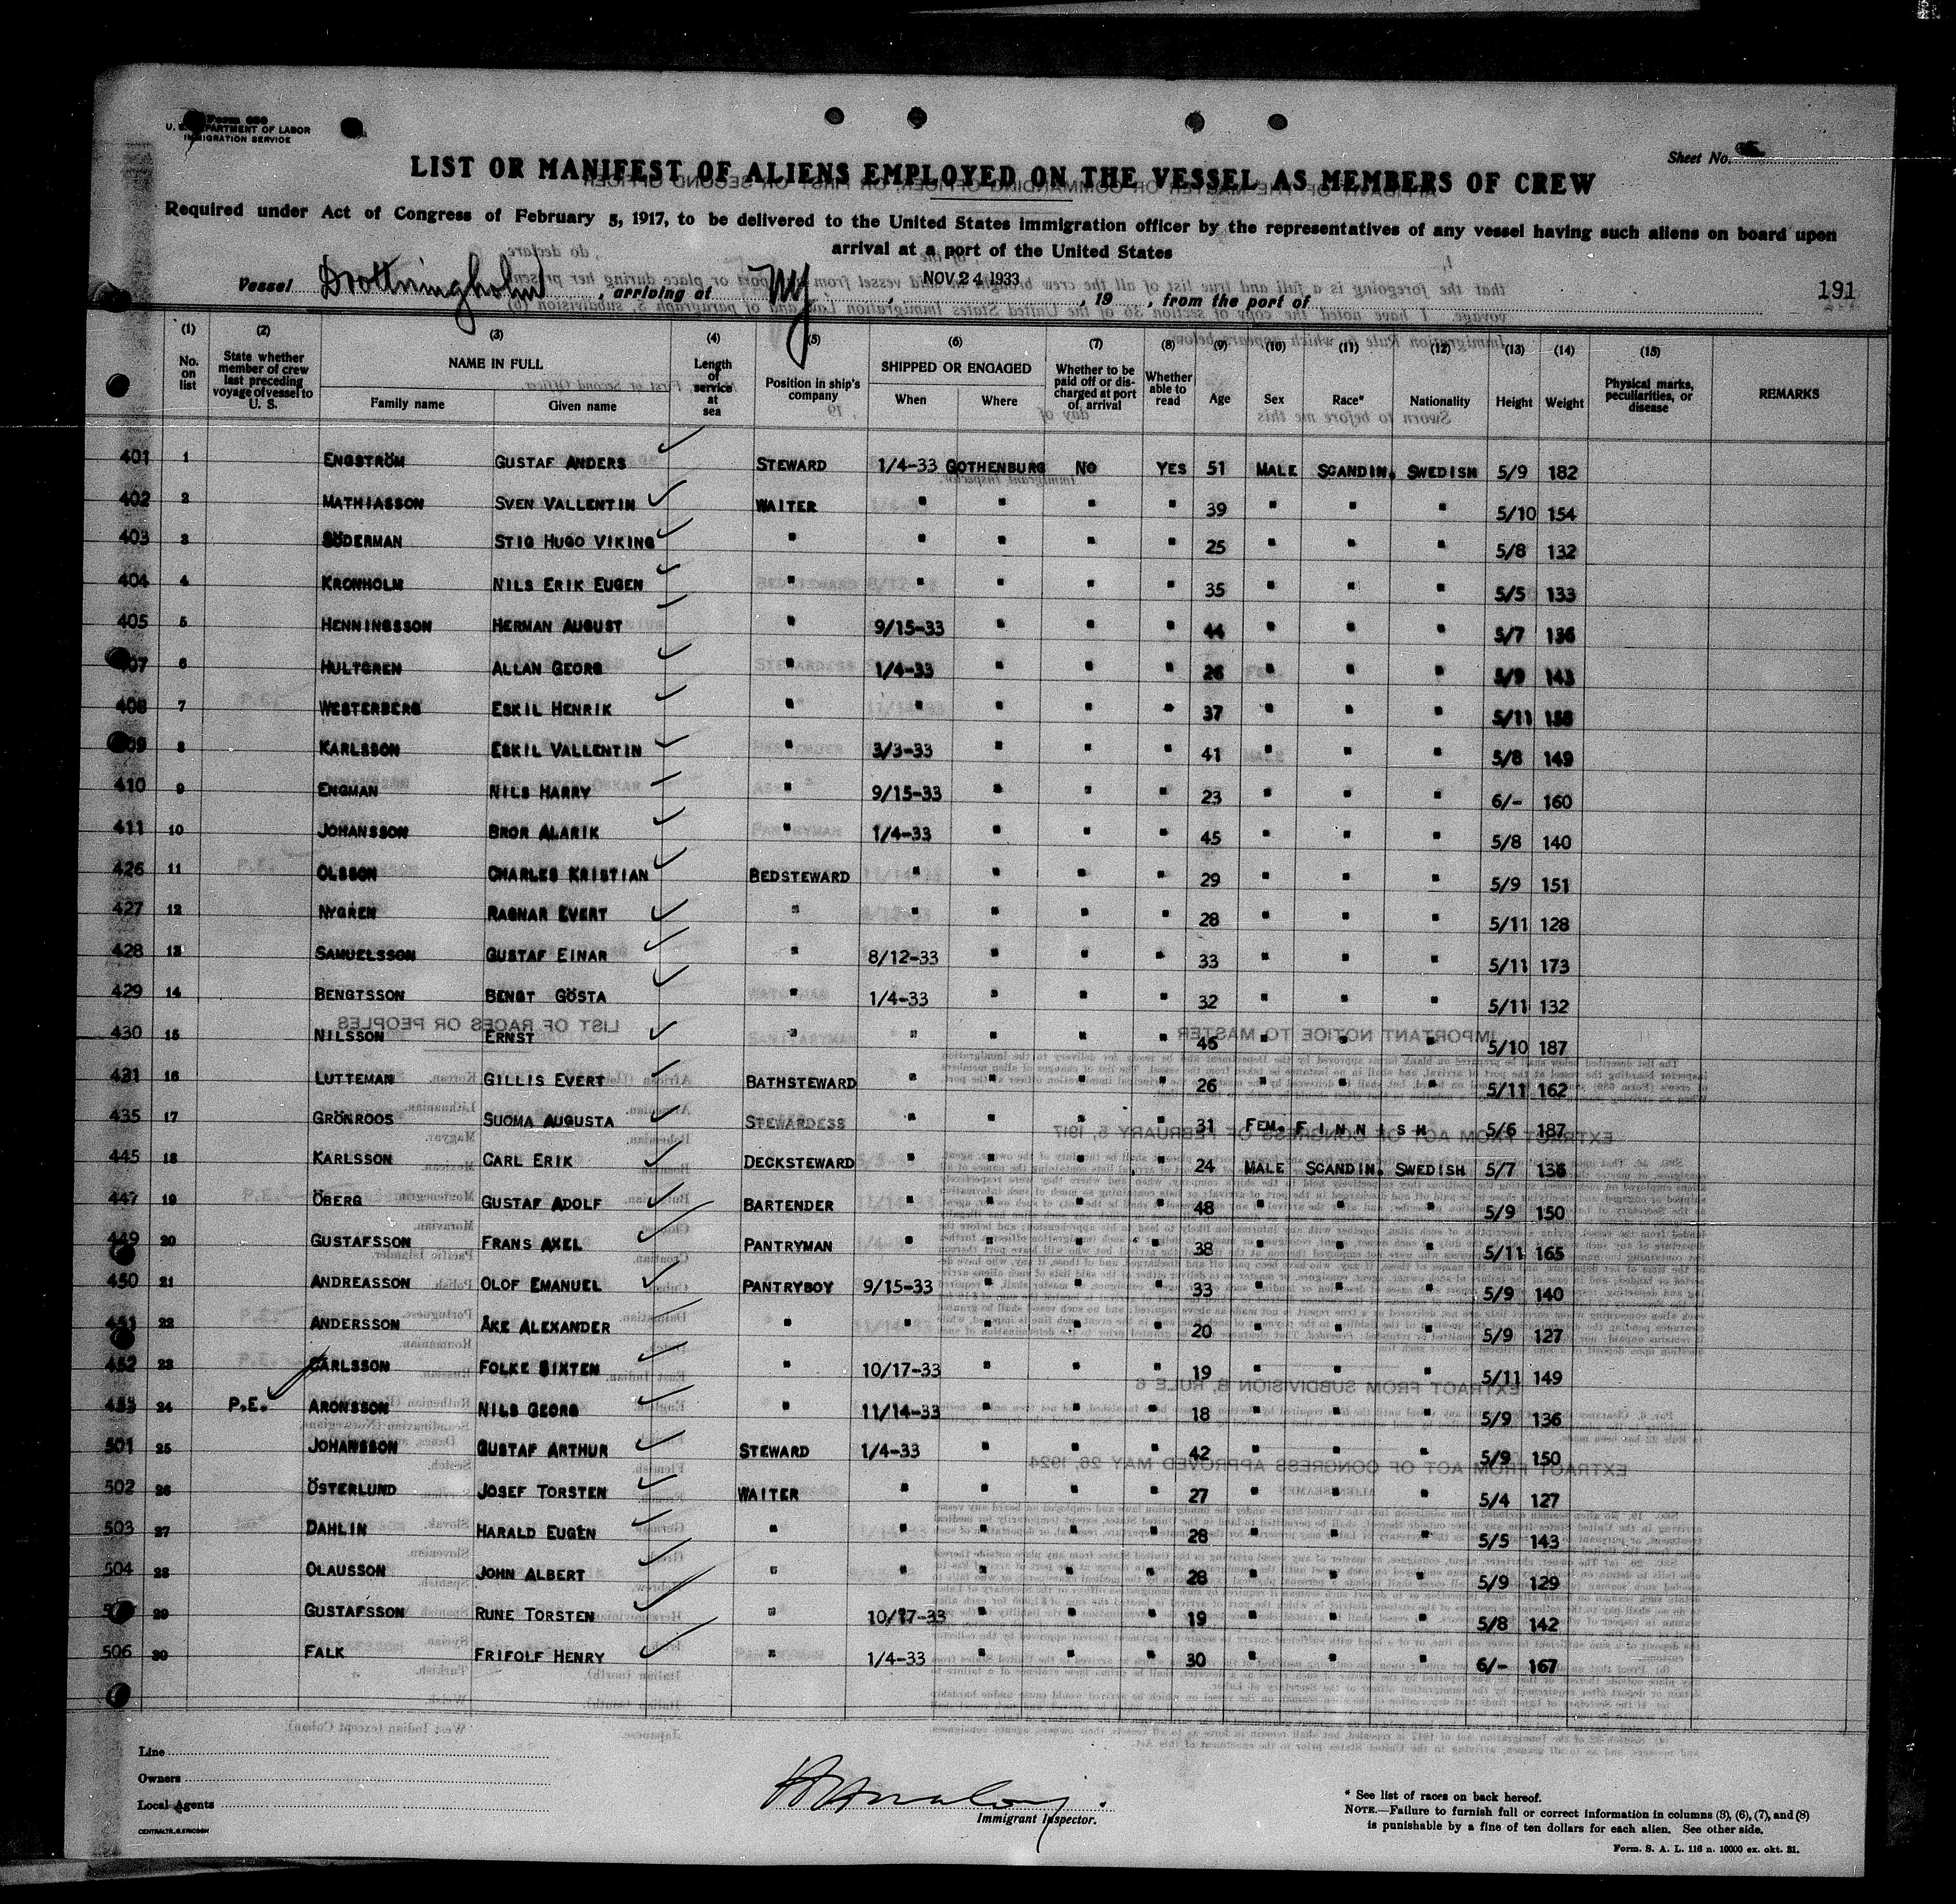 Form 680
U. S. DEPARTMENT OF LABOR
IMMIGRATION SERVICE
Sheet No.
LIST OR MANIFEST OF ALIENS EMPLOYED ON THE VESSEL AS MEMBERS OF CREW
Required under Act of Congress of February 5, 1917, to be delivered to the United States immigration officer by the representatives of any vessel having such aliens on board upon
arrival at a port of the United States
Vessel Drottningholm, arriving at NY, NOV 24 1933, 19 , from the port of
191
(1) (2) (3) (4) (5) (6) (7) (8) (9) (10) (11) (12) (13) (14) (15)
No. on list State whether member of crew last preceding voyage of vessel to U. S. NAME IN FULL Family name Given name Length of service at sea Position in ship's company SHIPPED OR ENGAGED When Where Whether to be paid off or discharged at port of arrival Whether able to read Age Sex Race* Nationality Height Weight Physical marks, peculiarities, or disease REMARKS
401 1 ENGSTRÖM GUSTAF ANDERS STEWARD 1/4-33 GOTHENBURG NO YES 51 MALE SCANDIN. SWEDISH 5/9 182
402 2 MATHIASSON SVEN VALLENTIN WAITER " " " " 39 " " " 5/10 154
403 3 SÖDERMAN STIG HUGO VIKING " " " " " 25 " " " 5/8 132
404 4 KRONHOLM NILS ERIK EUGEN " " " " " 35 " " " 5/5 133
405 5 HENNINGSSON HERMAN AUGUST " 9/15-33 " " " 44 " " " 5/7 136
407 6 HULTGREN ALLAN GEORG " 1/4-33 " " " 26 " " " 5/9 143
408 7 WESTERBERG ESKIL HENRIK " " " " " 37 " " " 5/11 158
409 8 KARLSSON ESKIL VALLENTIN " 3/3-33 " " " 41 " " " 5/8 149
410 9 ENGMAN NILS HARRY " 9/15-33 " " " 23 " " " 6/- 160
411 10 JOHANSSON BROR ALARIK " 1/4-33 " " " 45 " " " 5/8 140
426 11 OLSSON CHARLES KRISTIAN BEDSTEWARD " " " " 29 " " " 5/9 151
427 12 NYGREN RAGNAR EVERT " " " " " 28 " " " 5/11 128
428 13 SAMUELSSON GUSTAF EINAR " 8/12-33 " " " 33 " " " 5/11 173
429 14 BENGTSSON BENGT GÖSTA " 1/4-33 " " " 32 " " " 5/11 132
430 15 NILSSON ERNST " " " " " 46 " " " 5/10 187
431 16 LUTTEMAN GILLIS EVERT BATHSTEWARD " " " " 26 " " " 5/11 162
435 17 GRÖNROOS SUOMA AUGUSTA STEWARDESS " " " " 31 FEM. FINNISH 5/6 187
445 18 KARLSSON CARL ERIK DECKSTEWARD " " " " 24 MALE SCANDIN. SWEDISH 5/7 136
447 19 ÖBERG GUSTAF ADOLF BARTENDER " " " " 48 " " " 5/9 150
449 20 GUSTAFSSON FRANS AXEL PANTRYMAN " " " " 38 " " " 5/11 165
450 21 ANDREASSON OLOF EMANUEL PANTRYBOY 9/15-33 " " " 33 " " " 5/9 140
451 22 ANDERSSON ÅKE ALEXANDER " " " " " 20 " " " 5/9 127
452 23 CARLSSON FOLKE SIXTEN " 10/17-33 " " " 19 " " " 5/11 149
453 24 P.E. ARONSSON NILS GEORG " 11/14-33 " " " 18 " " " 5/9 136
501 25 JOHANSSON GUSTAF ARTHUR STEWARD 1/4-33 " " " 42 " " " 5/9 150
502 26 ÖSTERLUND JOSEF TORSTEN WAITER " " " " 27 " " " 5/4 127
503 27 DAHLIN HARALD EUGEN " " " " " 28 " " " 5/5 143
504 28 OLAUSSON JOHN ALBERT " " " " " 28 " " " 5/9 129
29 GUSTAFSSON RUNE TORSTEN " 10/17-33 " " " 19 " " " 5/8 142
506 30 FALK FRIFOLF HENRY " 1/4-33 " " " 30 " " " 6/- 167
Line
Owners
Local Agents
CENTRALTR. G. ERICSON
Immigrant Inspector.
* See list of races on back hereof.
NOTE.—Failure to furnish full or correct information in columns (3), (6), (7), and (8)
is punishable by a fine of ten dollars for each alien. See other side.
Form. S. A. L. 116 n. 10000 ex. okt. 31.